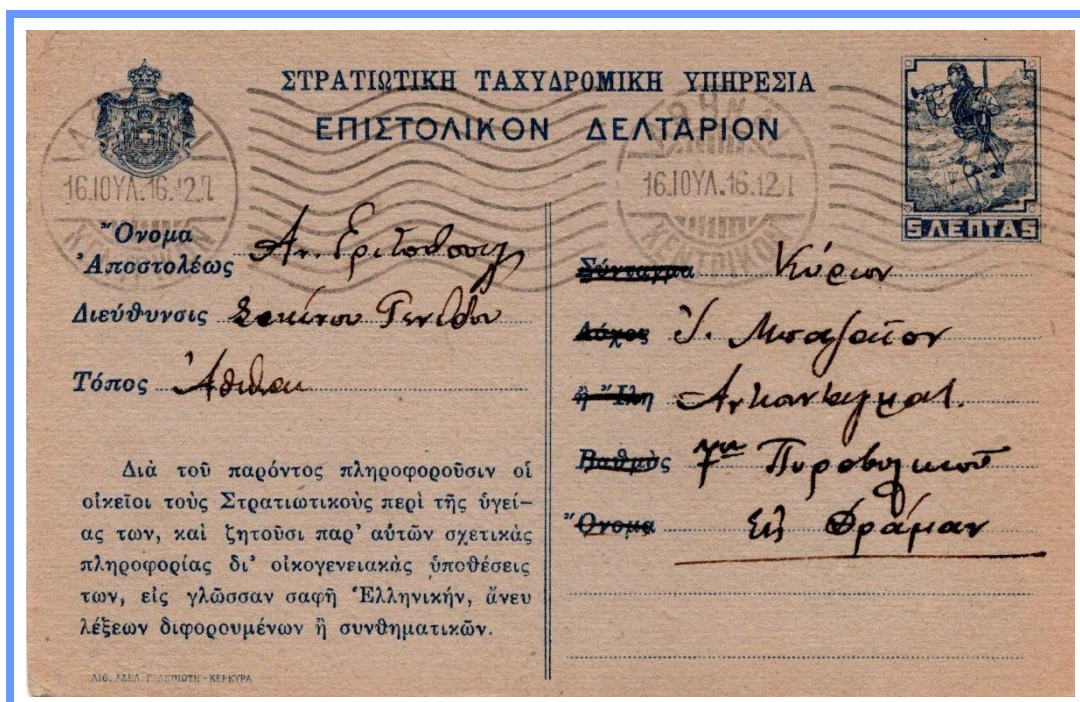 ΣΤΡΑΤΙΩΤΙΚΗ ΤΑΧΥΔΡΟΜΙΚΗ ΥΠΗΡΕΣΙΑ
ΕΠΙΣΤΟΛΙΚΟΝ ΔΕΛΤΑΡΙΟΝ
5 ΛΕΠΤΑ 5
16.ΙΟΥΛ.16.12
16.ΙΟΥΛ.16.12
Ὄνομα
Ἀποστολέως Ἀν.
Διεύθυνσις
Τόπος Ἀθῆναι
Διὰ τοῦ παρόντος πληροφοροῦσιν οἱ
οἰκεῖοι τοὺς Στρατιωτικοὺς περὶ τῆς ὑγεί–
ας των, καὶ ζητοῦσι παρ' αὐτῶν σχετικὰς
πληροφορίας δι' οἰκογενειακὰς ὑποθέσεις
των, εἰς γλῶσσαν σαφῆ Ἑλληνικήν, ἄνευ
λέξεων διφορουμένων ἢ συνθηματικῶν.
ΛΙΘ. ΑΔΕΛ. Γ. ΑΣΠΙΩΤΗ - ΚΕΡΚΥΡΑ
Σύνταγμα Κύριον
Λόχος Ἰ.
ἢ Ἴλη
Βαθμὸς Πυροβολικοῦ
Ὄνομα Εἰς Δράμαν